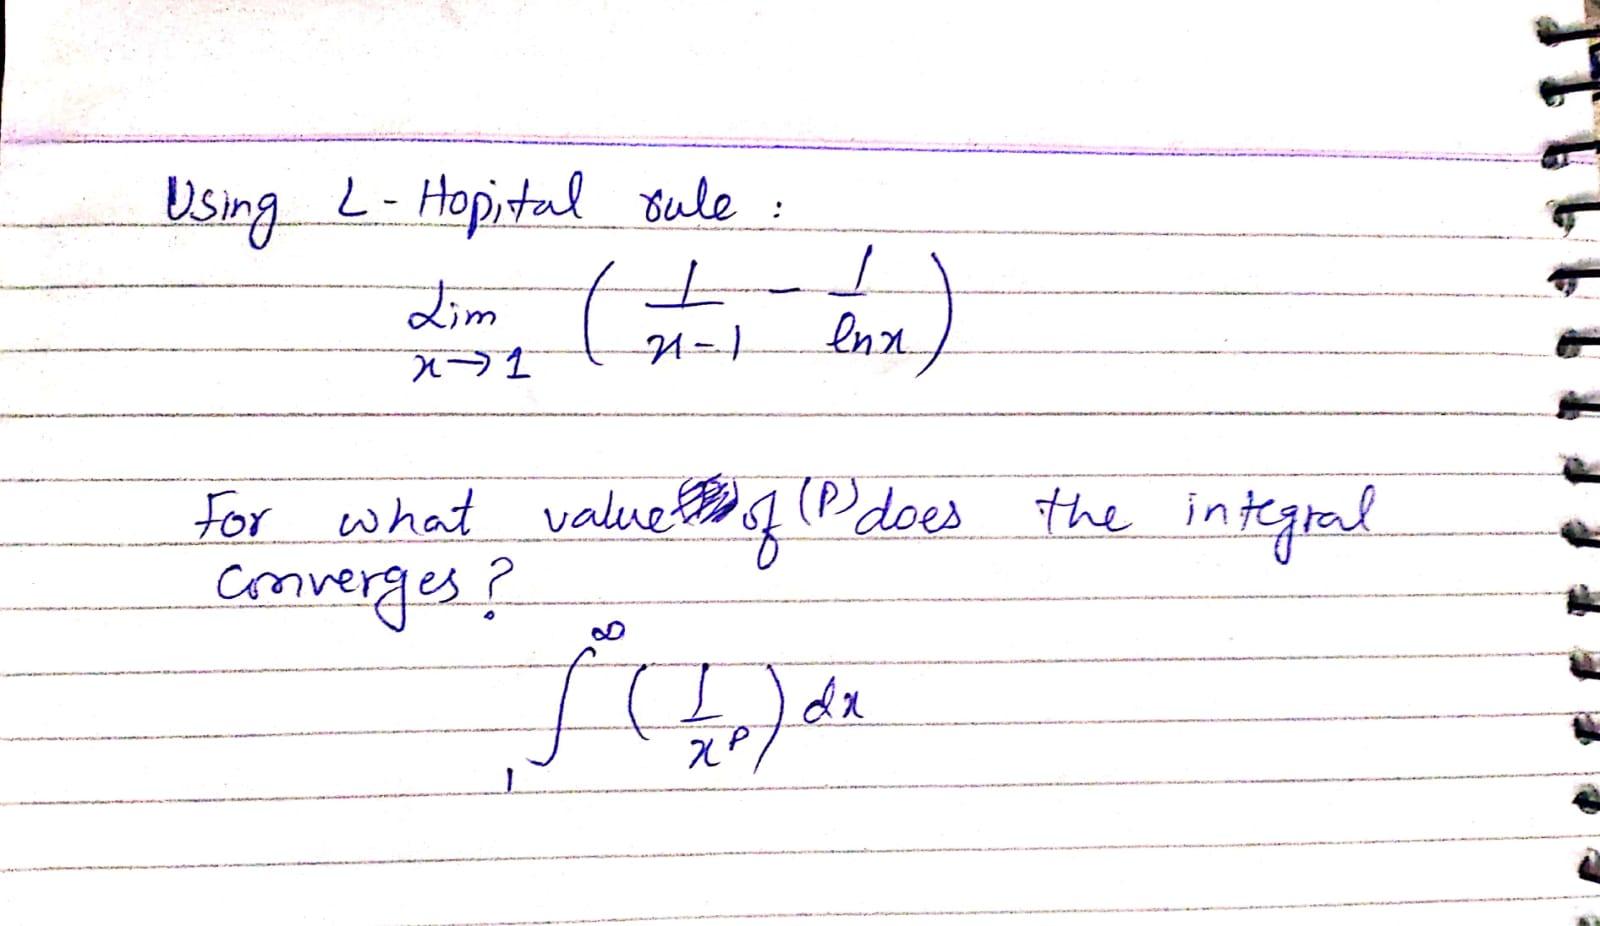 Using L-Hopital rule :
Lim x→1 ( 1/(x-1) - 1/ln x )
For what value of (P) does the integral
converges ?
∫₁^∞ ( 1/x^P ) dx